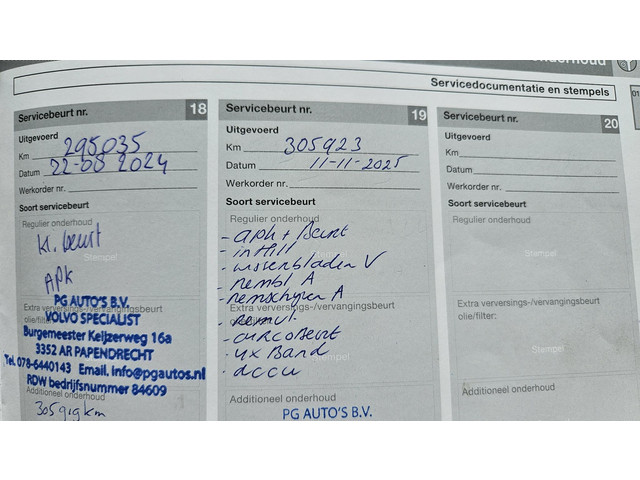 Servicedocumentatie en stempels
01
Servicebeurt nr. 18
Uitgevoerd
Km 295035
Datum 22-08 2024
Werkorder nr.
Soort servicebeurt
Regulier onderhoud
kl. beurt
Stempel
APK
PG AUTO'S B.V.
Extra verversings-/vervangingsbeurt
VOLVO SPECIALIST
olie/filter:
Burgemeester Keijzerweg 16a
3352 AR PAPENDRECHT
Tel. 078-6440143 Email. info@pgautos.nl
RDW bedrijfsnummer 84609
Additioneel onderhoud
305919km
Servicebeurt nr. 19
Uitgevoerd
Km 305923
Datum 11-11-2025
Werkorder nr.
Soort servicebeurt
Regulier onderhoud
- apk + Beurt
- wissenbladen V
- Rembl A
- Remschijven A
Extra verversings-/vervangingsbeurt
olie/filter:
- Remvl.
- aircoBeurt
- 4x Band
Stempel
- accu
Additioneel onderhoud
PG AUTO'S B.V.
Servicebeurt nr. 20
Uitgevoerd
Km
Datum
Werkorder nr.
Soort servicebeurt
Regulier onderhoud
Stempel
Extra verversings-/vervangingsbeurt
olie/filter:
Stempel
Additioneel onderhoud